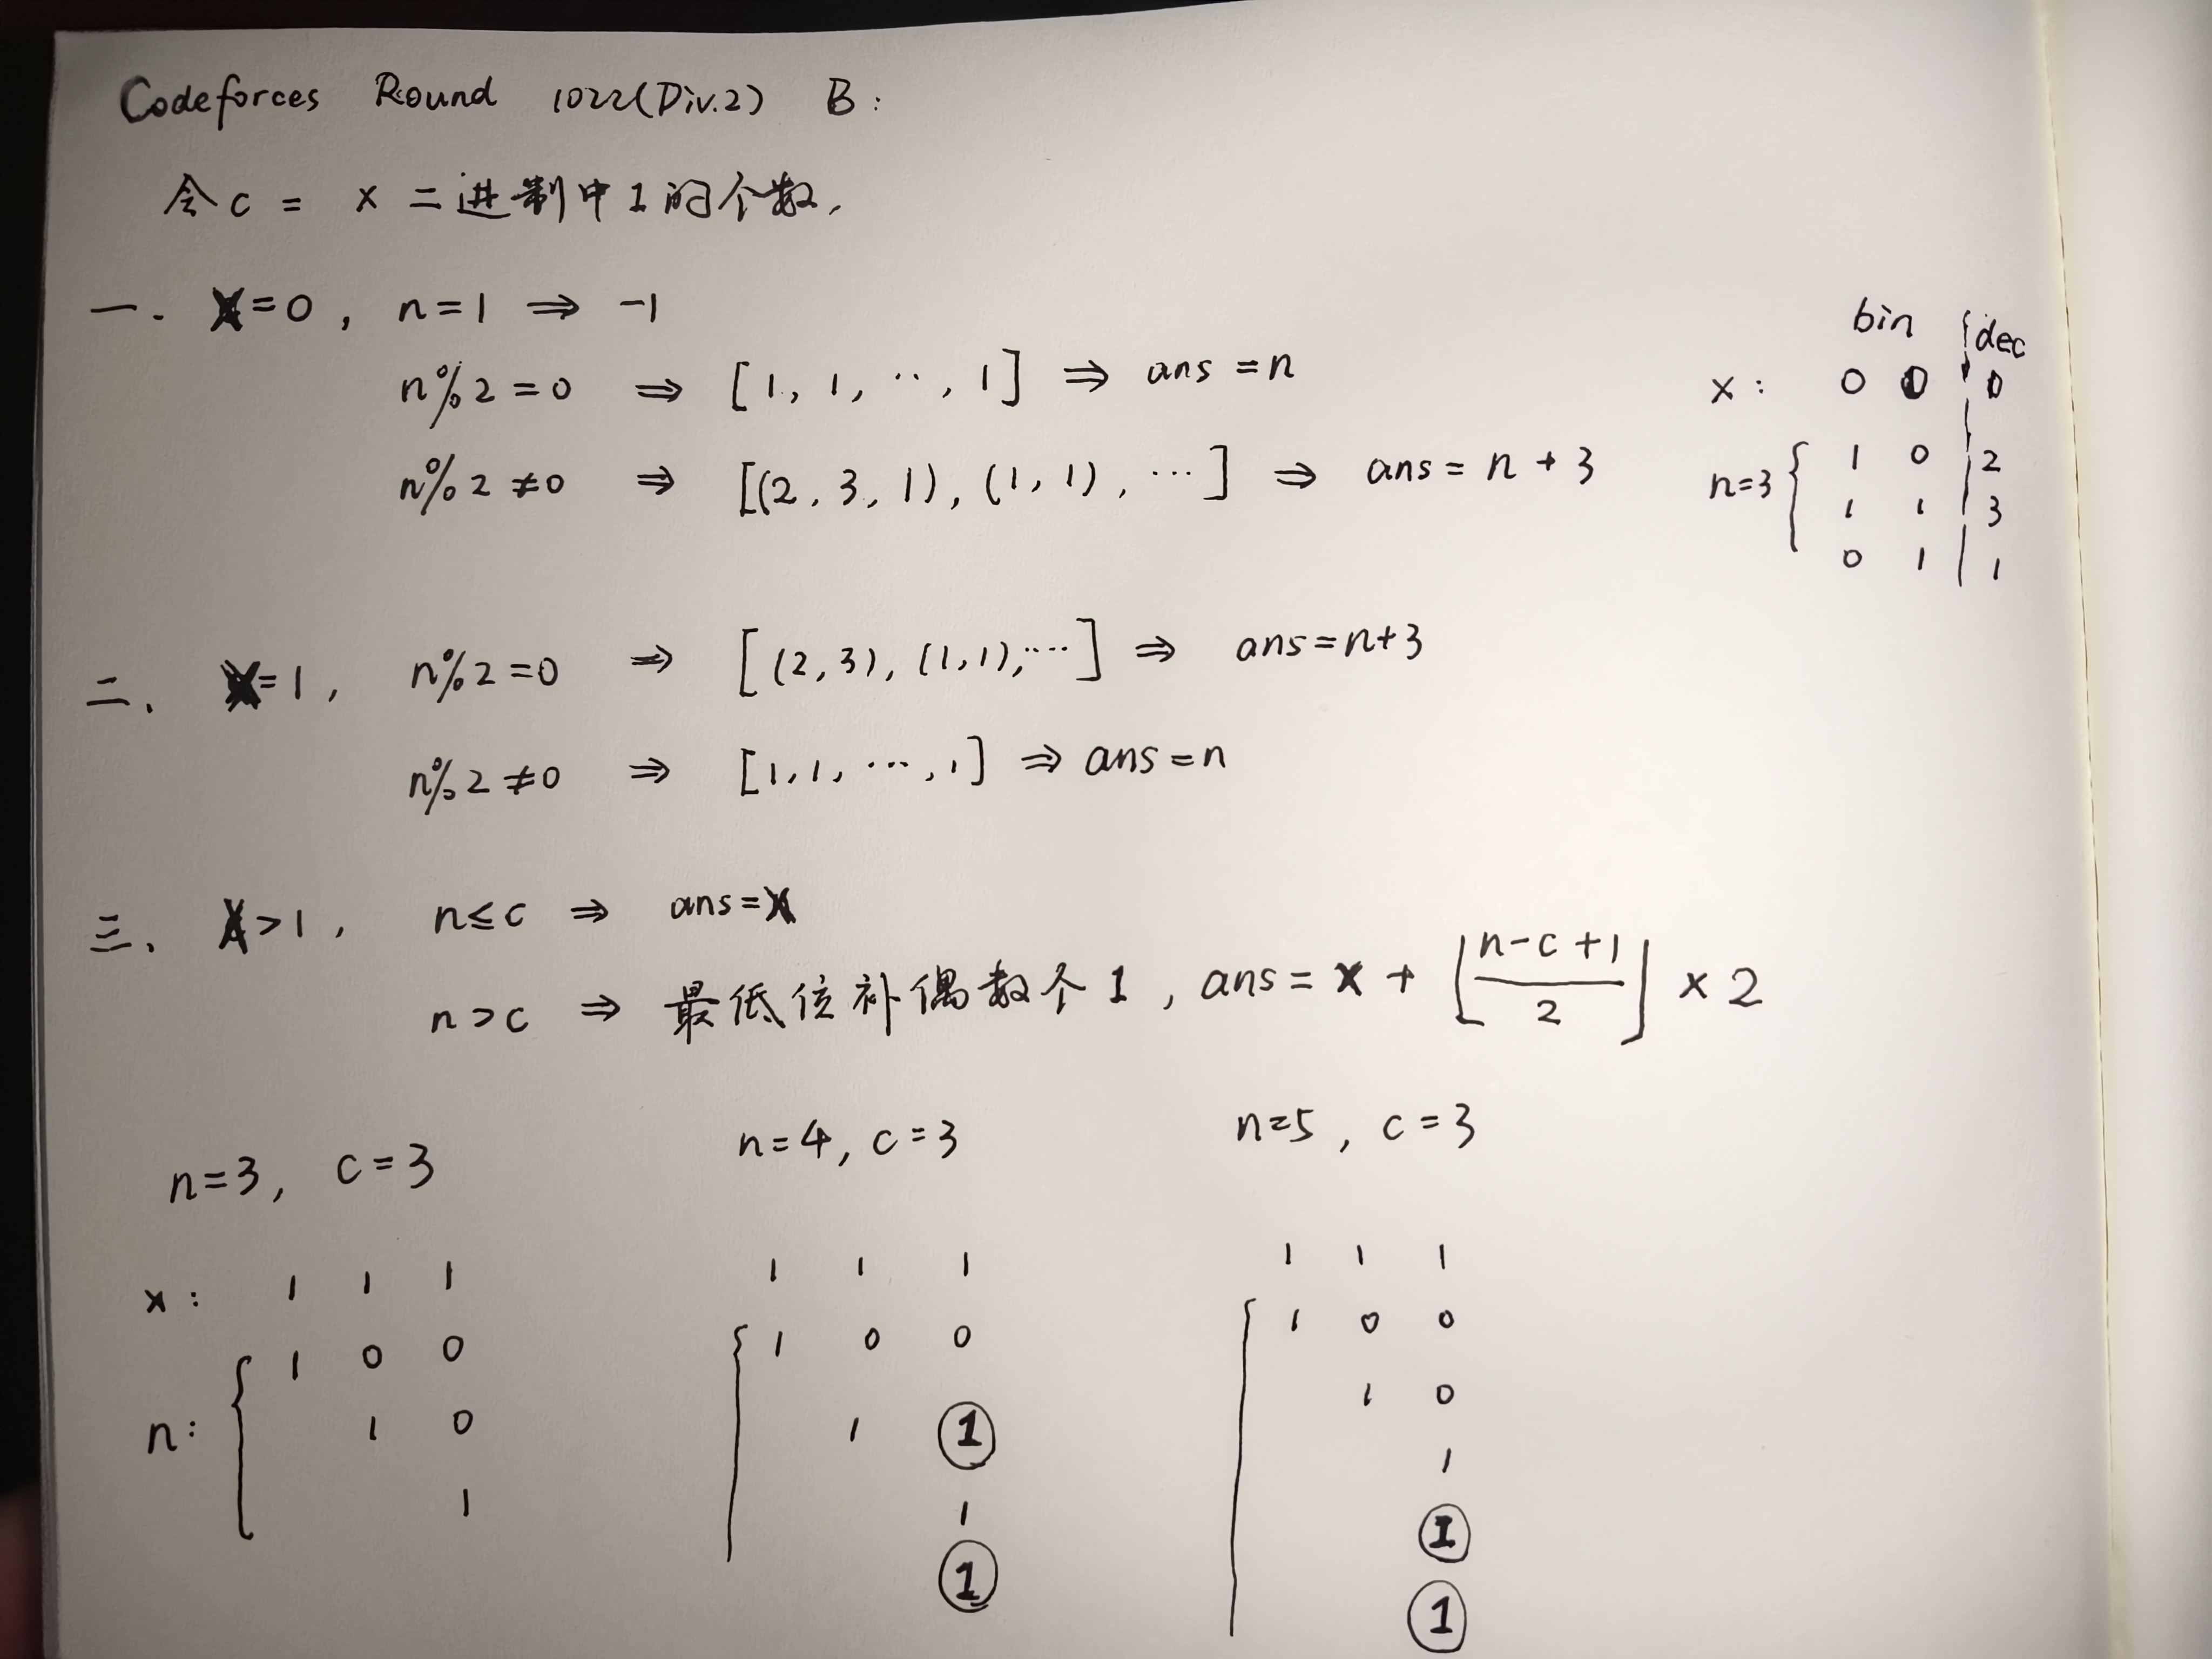 Codeforces Round 1022(Div.2) B:
令c = x二进制中1的个数,
一. X=0, n=1 ⇒ -1
n%2=0 ⇒ [1, 1, ‥, 1] ⇒ ans=n
n%2≠0 ⇒ [(2, 3, 1), (1, 1), ⋯] ⇒ ans= n+3
bin dec
x: 0 0 0
n=3 { 1 0 2
1 1 3
0 1 1
二、 X=1, n%2=0 ⇒ [(2,3), (1,1),⋯] ⇒ ans=n+3
n%2≠0 ⇒ [1,1, ⋯, 1] ⇒ ans=n
三、 X>1, n≤c ⇒ ans=X
n>c ⇒ 最低位补偶数个1, ans= x + ⌊(n-c+1)/2⌋ × 2
n=3, c=3
x: 1 1 1
n: { 1 0 0
1 0
1
n=4, c=3
1 1 1
{ 1 0 0
1 ①
1
①
n=5, c=3
1 1 1
{ 1 0 0
1 0
1
①
①